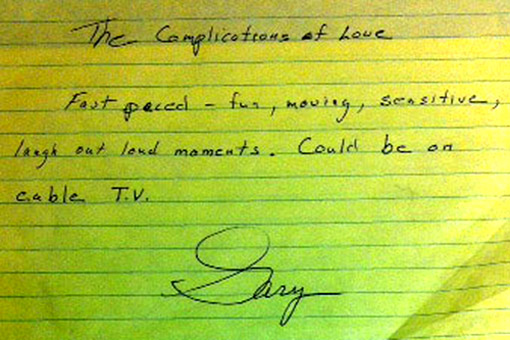 The Complications of Love
Fast paced - fun, moving, sensitive,
laugh out loud moments. Could be on
cable T.V.
Gary